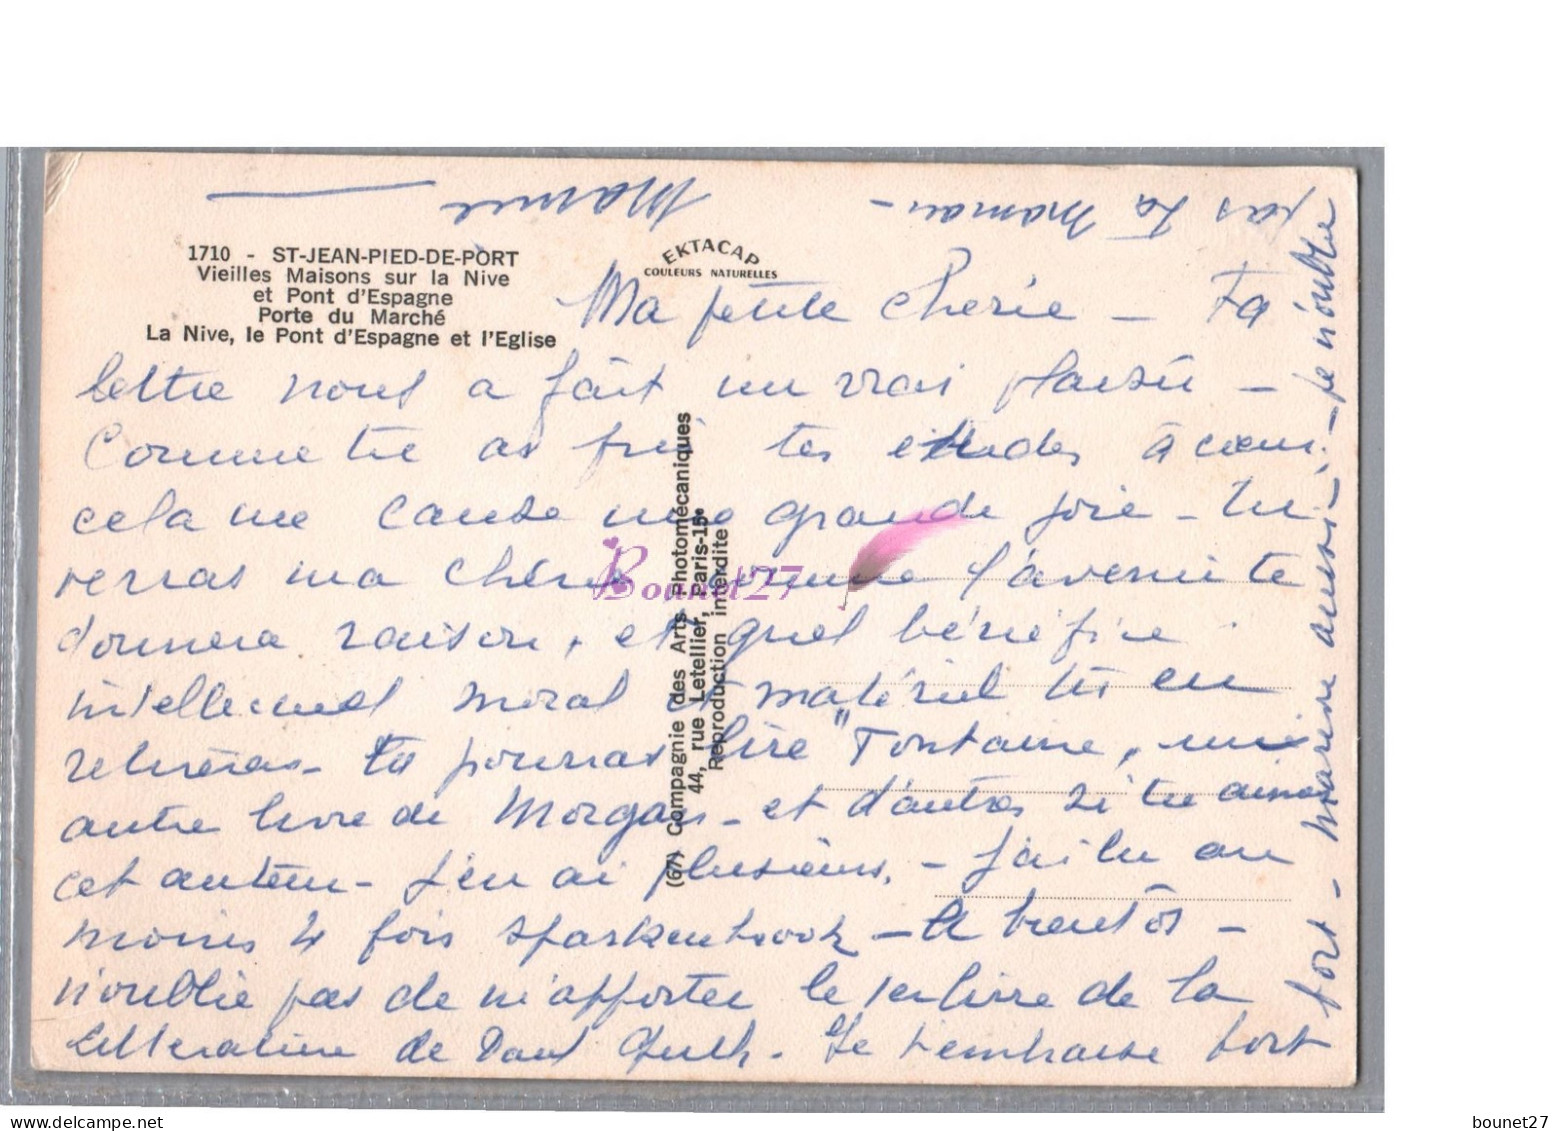 1710 - ST-JEAN-PIED-DE-PORT
Vieilles Maisons sur la Nive
et Pont d'Espagne
Porte du Marché
La Nive, le Pont d'Espagne et l'Eglise
EKTACAP
COULEURS NATURELLES
Ma petite Chérie - Ta
lettre nous a fait un vrai plaisir -
Comme tu as pris tes études à coeur,
cela me cause une grande joie - tu
verras ma chérie comme l'avenir te
donnera raison, et quel bénéfice
intellectuel moral et matériel tu en
retireras - tu pourras lire "Fontaine, un
autre livre de Morgan - et d'autres si tu aimes
cet auteur - J'en ai plusieurs. - J'ai lu au
moins 4 fois Sparkenbrook - A bientôt -
N'oublie pas de m'apporter le 1er livre de la
littérature de Paul Guth. - Je t'embrasse fort
fort - Maryse aussi - je n'oublie
pas ta Maman -
Mamie
(67) Compagnie des Arts Photomécaniques
44, rue Letellier, Paris-15e
Reproduction interdite
Bounet27
bounet27